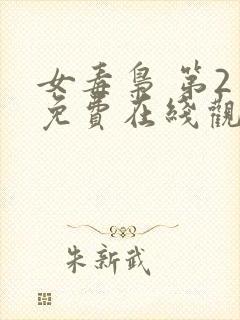 女毒梟 第2
免費在綫觀
朱新武